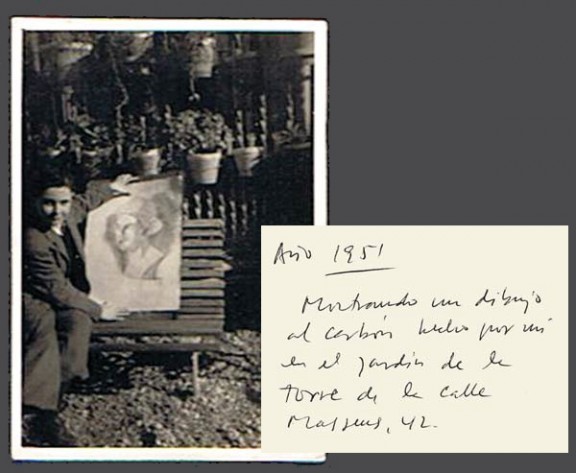 Año 1951
Mostrando un dibujo
al carbón hecho por mi
en el jardín de la
torre de la calle
Massens, 42.